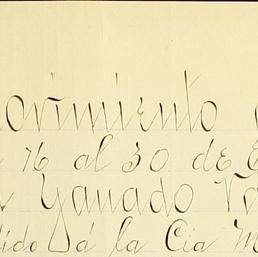 ovimiento
16 al 30 de E
Ganado Va
dido á la Cia M